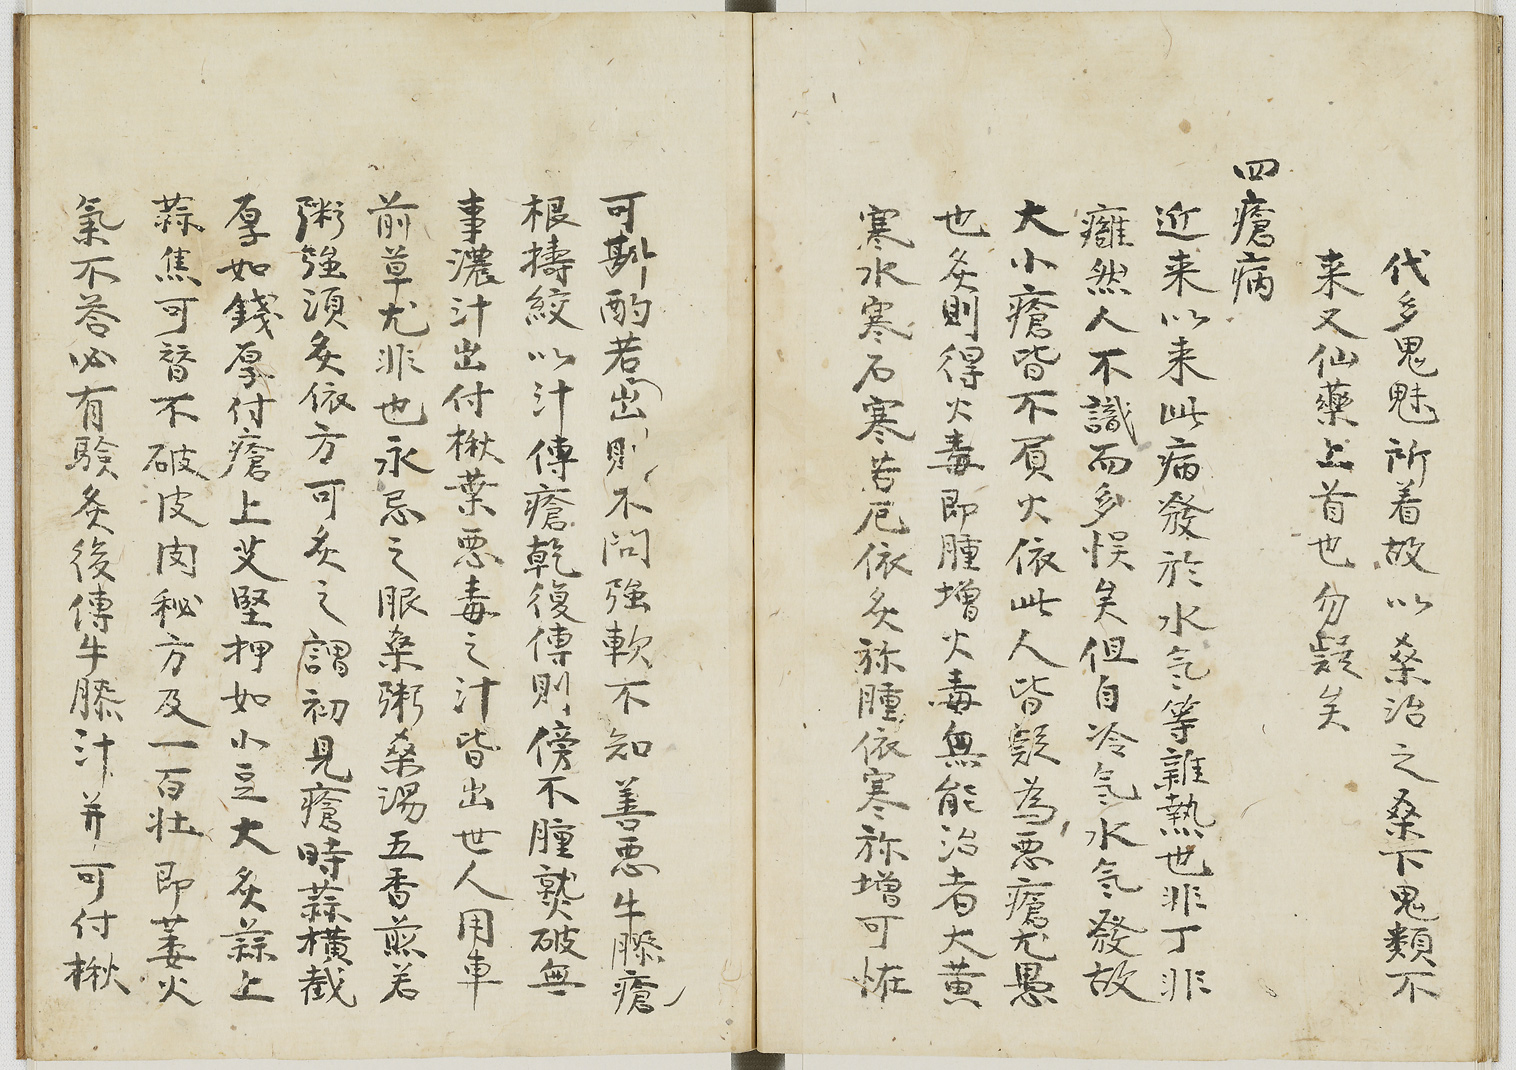 代多鬼魅所着故以桑治之桑下鬼類不
来又仙藥上首也勿疑矣
四瘡病
近来以来此病發於水气等雜熱也非丁非
癰然人不識而多悮矣但自冷气水气發故
大小瘡皆不負火依此人皆疑為悪瘡尤愚
也灸則得火毒即腫增火毒無能治者大黄
寒水寒石寒苦厄依灸弥腫依寒弥增可恠
可斟酌若出則不問強軟不知善悪牛膝瘡
根擣絞以汁傅瘡乾復傅則傍不腫熟破無
事濃汁出付楸葉悪毒之汁皆出世人用車
前草尤非也永忌之服桑粥桑湯五香煎若
粥強須灸依方可灸之謂初見瘡時蒜横截
厚如錢厚付瘡上艾堅押如小豆大灸蒜上
蒜焦可替不破皮肉秘方及一百壮即萎火
氣不答必有驗灸後傅牛膝汁并可付楸